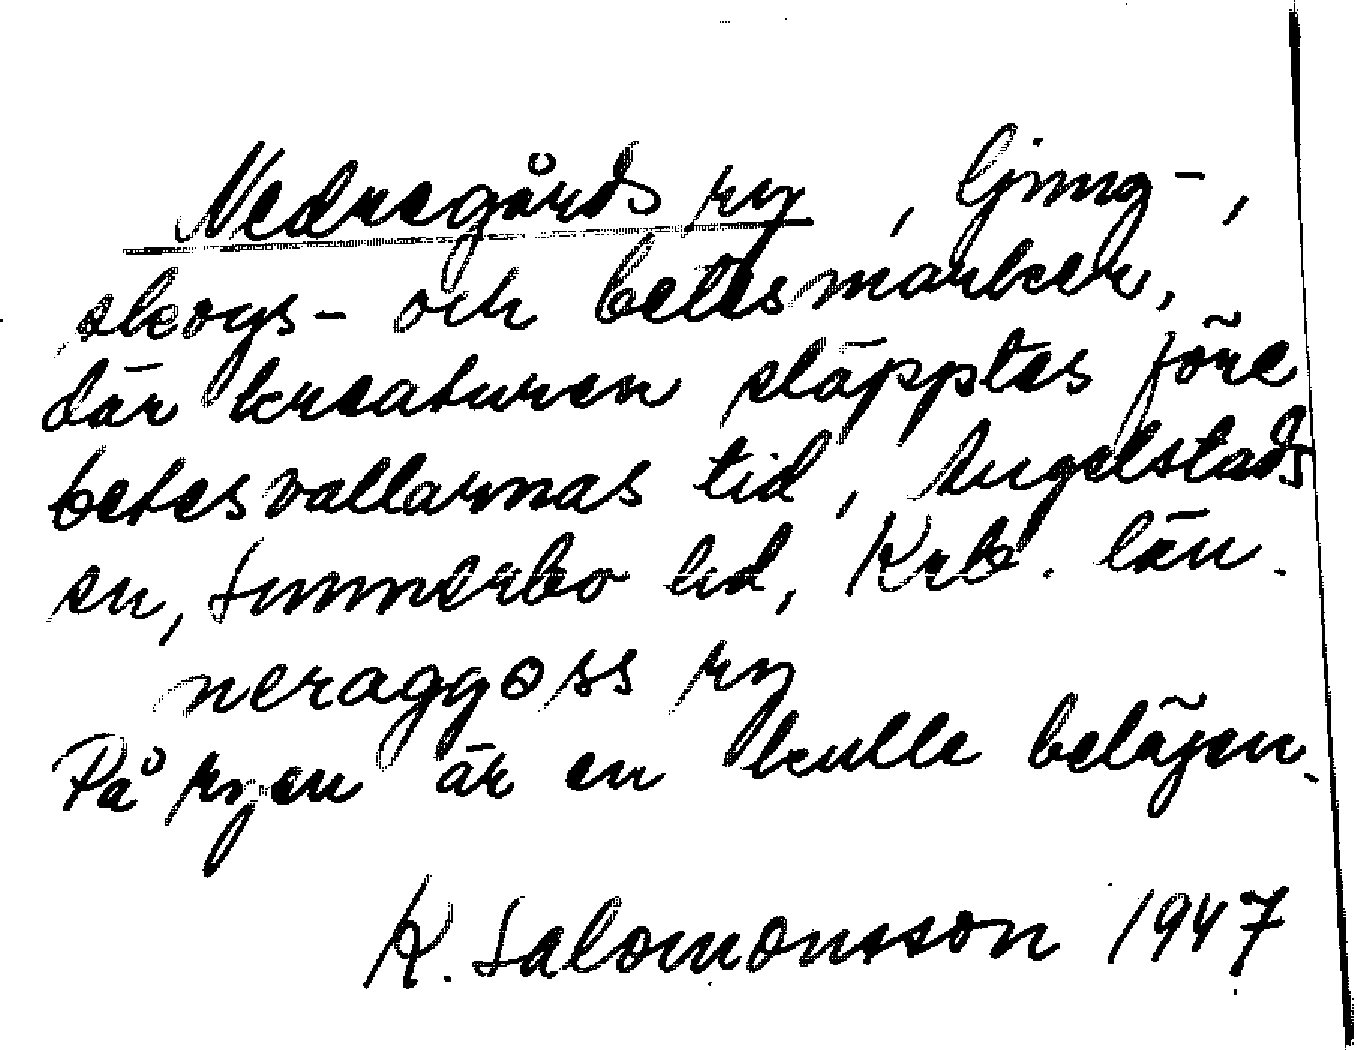 Nedregårds ry, ljung-,
skogs- och betesmarker,
där kreaturen släpptes före
betesvallarnas tid, Angelstads
sn, Sunnerbo hd, Krb. län.
neraggøss ry
På ryen är en kulle belägen.
K. Salomonsson 1947